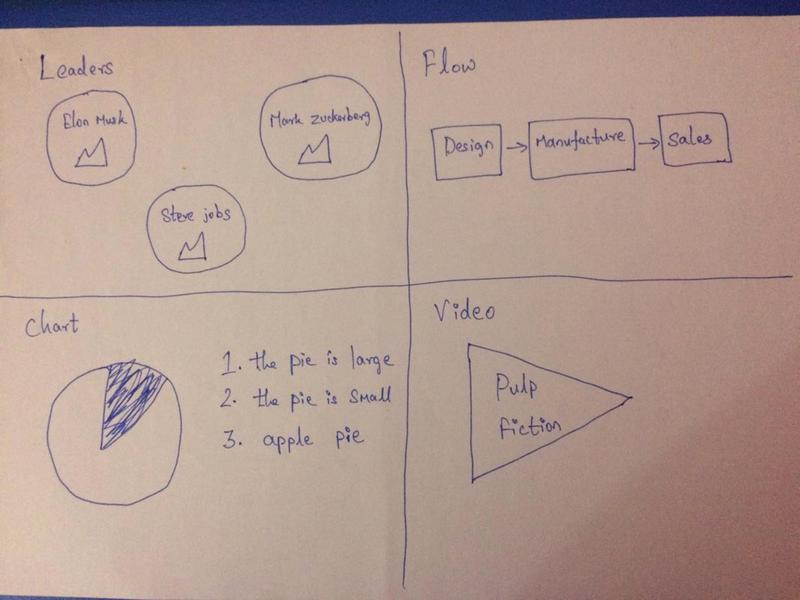 Leaders
Elon Musk
Mark Zuckerberg
Steve jobs
Flow
Design
Manufacture
Sales
Chart
1. the pie is large
2. the pie is small
3. apple pie
Video
Pulp
fiction